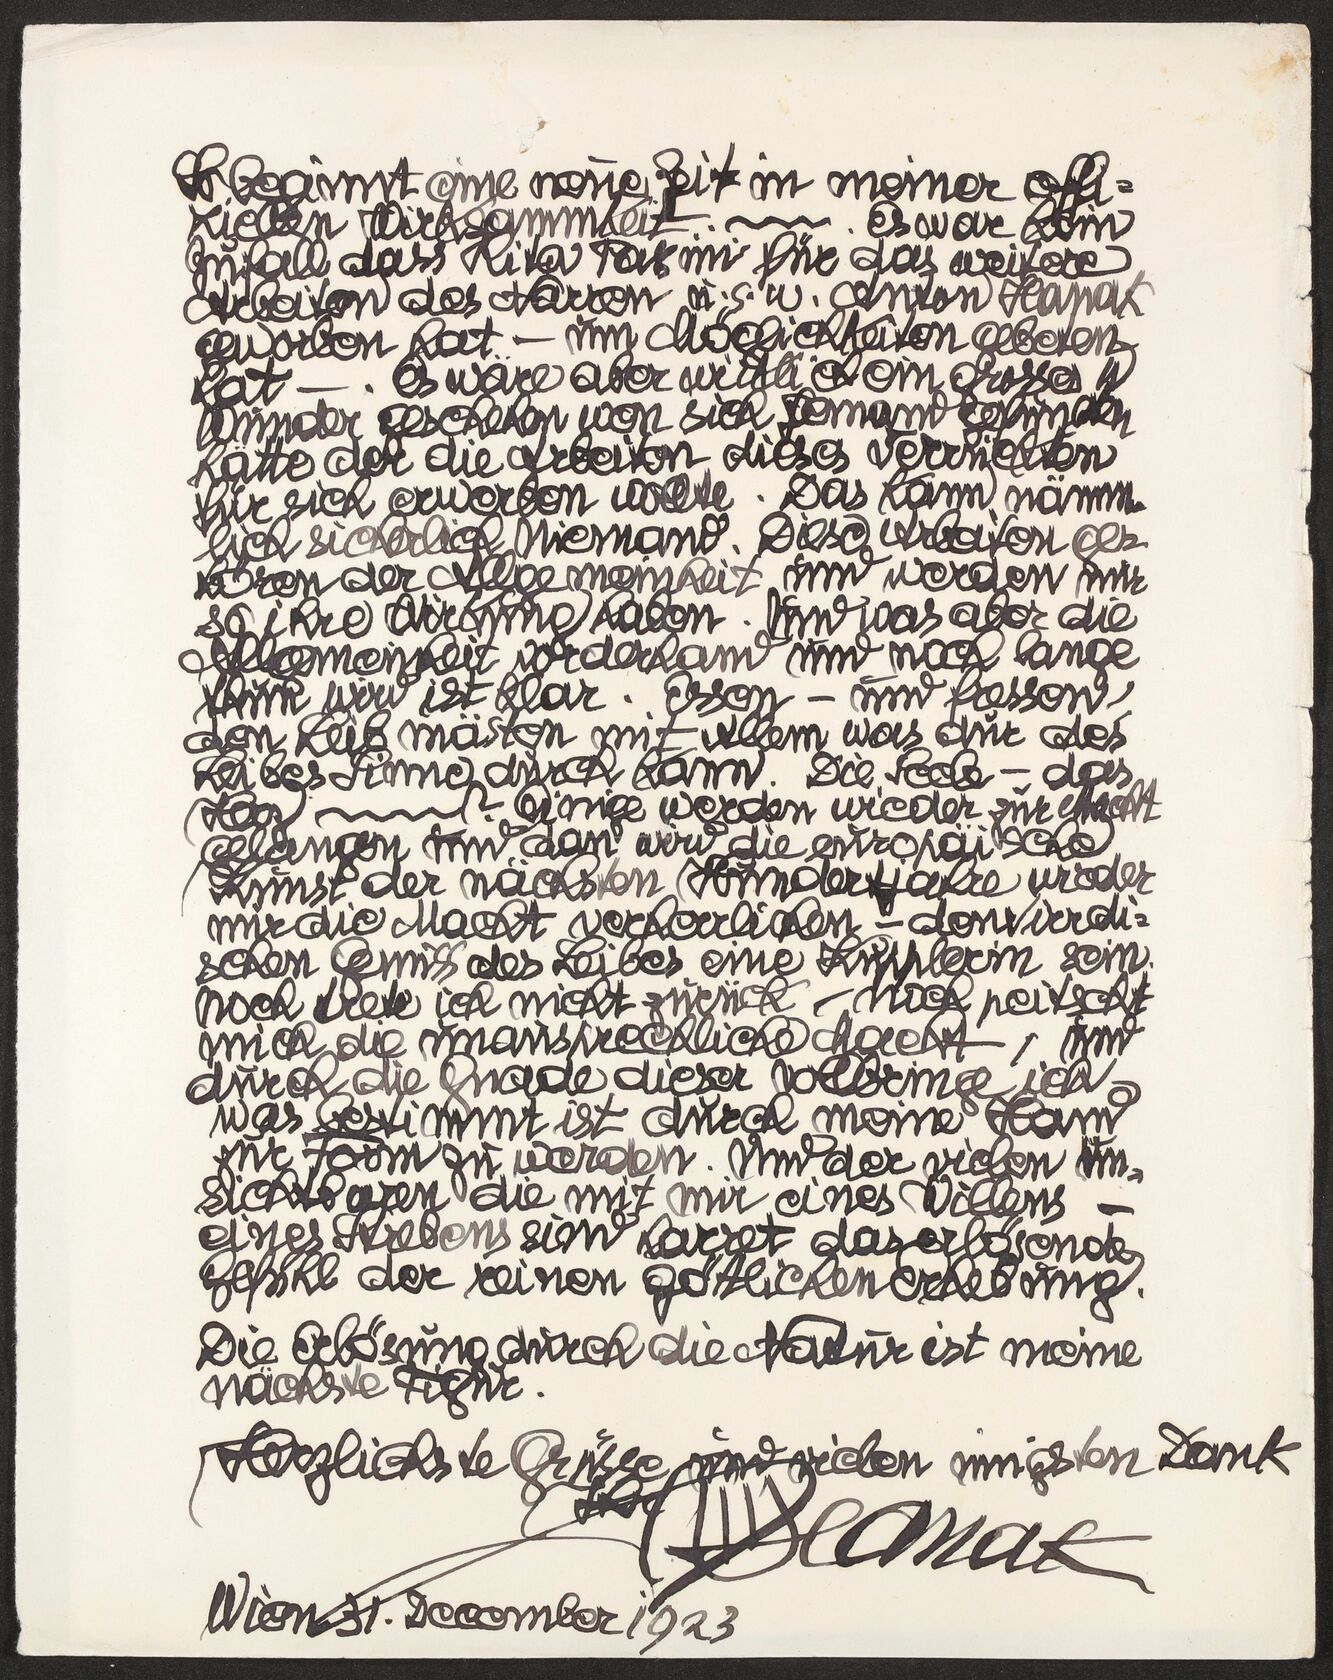 So beginnt eine neue Zeit in meiner offi=
ziellen Wirksammkeit . ~~~ . Es war kein
Zufall dass Kiko Takmi für das weitere
Arbeiten des Narren u. s. w. Anton Hanak
geworben hat — um Möglichkeiten gebeten
hat — . Es wäre aber wirklich ein grosses
Wunder geschehen wen sich Jemand gefunden
hätte der die Arbeiten dieses Verrückten
für sich erwerben wollte . Das kann nämm
lich sicherlich Niemand. Diese Arbeiten ge=
hören der Allgemeinheit und werden nur
so ihre Wirkung haben . Und was aber die
Allgemeinheit vorderhand und noch lange
thun wird ist klar . Essen — und fressen,
den Leib mästen mit Allem was dur des
Leibes Sinne durch kann . Die Seele — das
~~~? Einige werden wieder zur Macht
gelangen und dan wird die europäische
Kunst der nächsten Hundert Jahre wieder
nur die Macht verherrlichen — den irrdi=
schen Genuss des Leibes eine Kupplerin sein.
Noch trete ich nicht zurück — noch peitscht
mich die unaussprechliche Macht , und
durch die Gnade dieser vollbringe ich
was bestimmt ist durch meine Hand
zur Form zu werden . Und der vielen Un=
sichtbaren die mit mir eines Willens —
eines Strebens sind harret das erlösende
gefühl der reinen göttlichen Erhebung.
Die Erlösung durch die Natur ist meine
nächste Figur .
Herzlichste Grüsse und vielen innigsten Dank
Ihr Hanak
Wien 31. December 1923